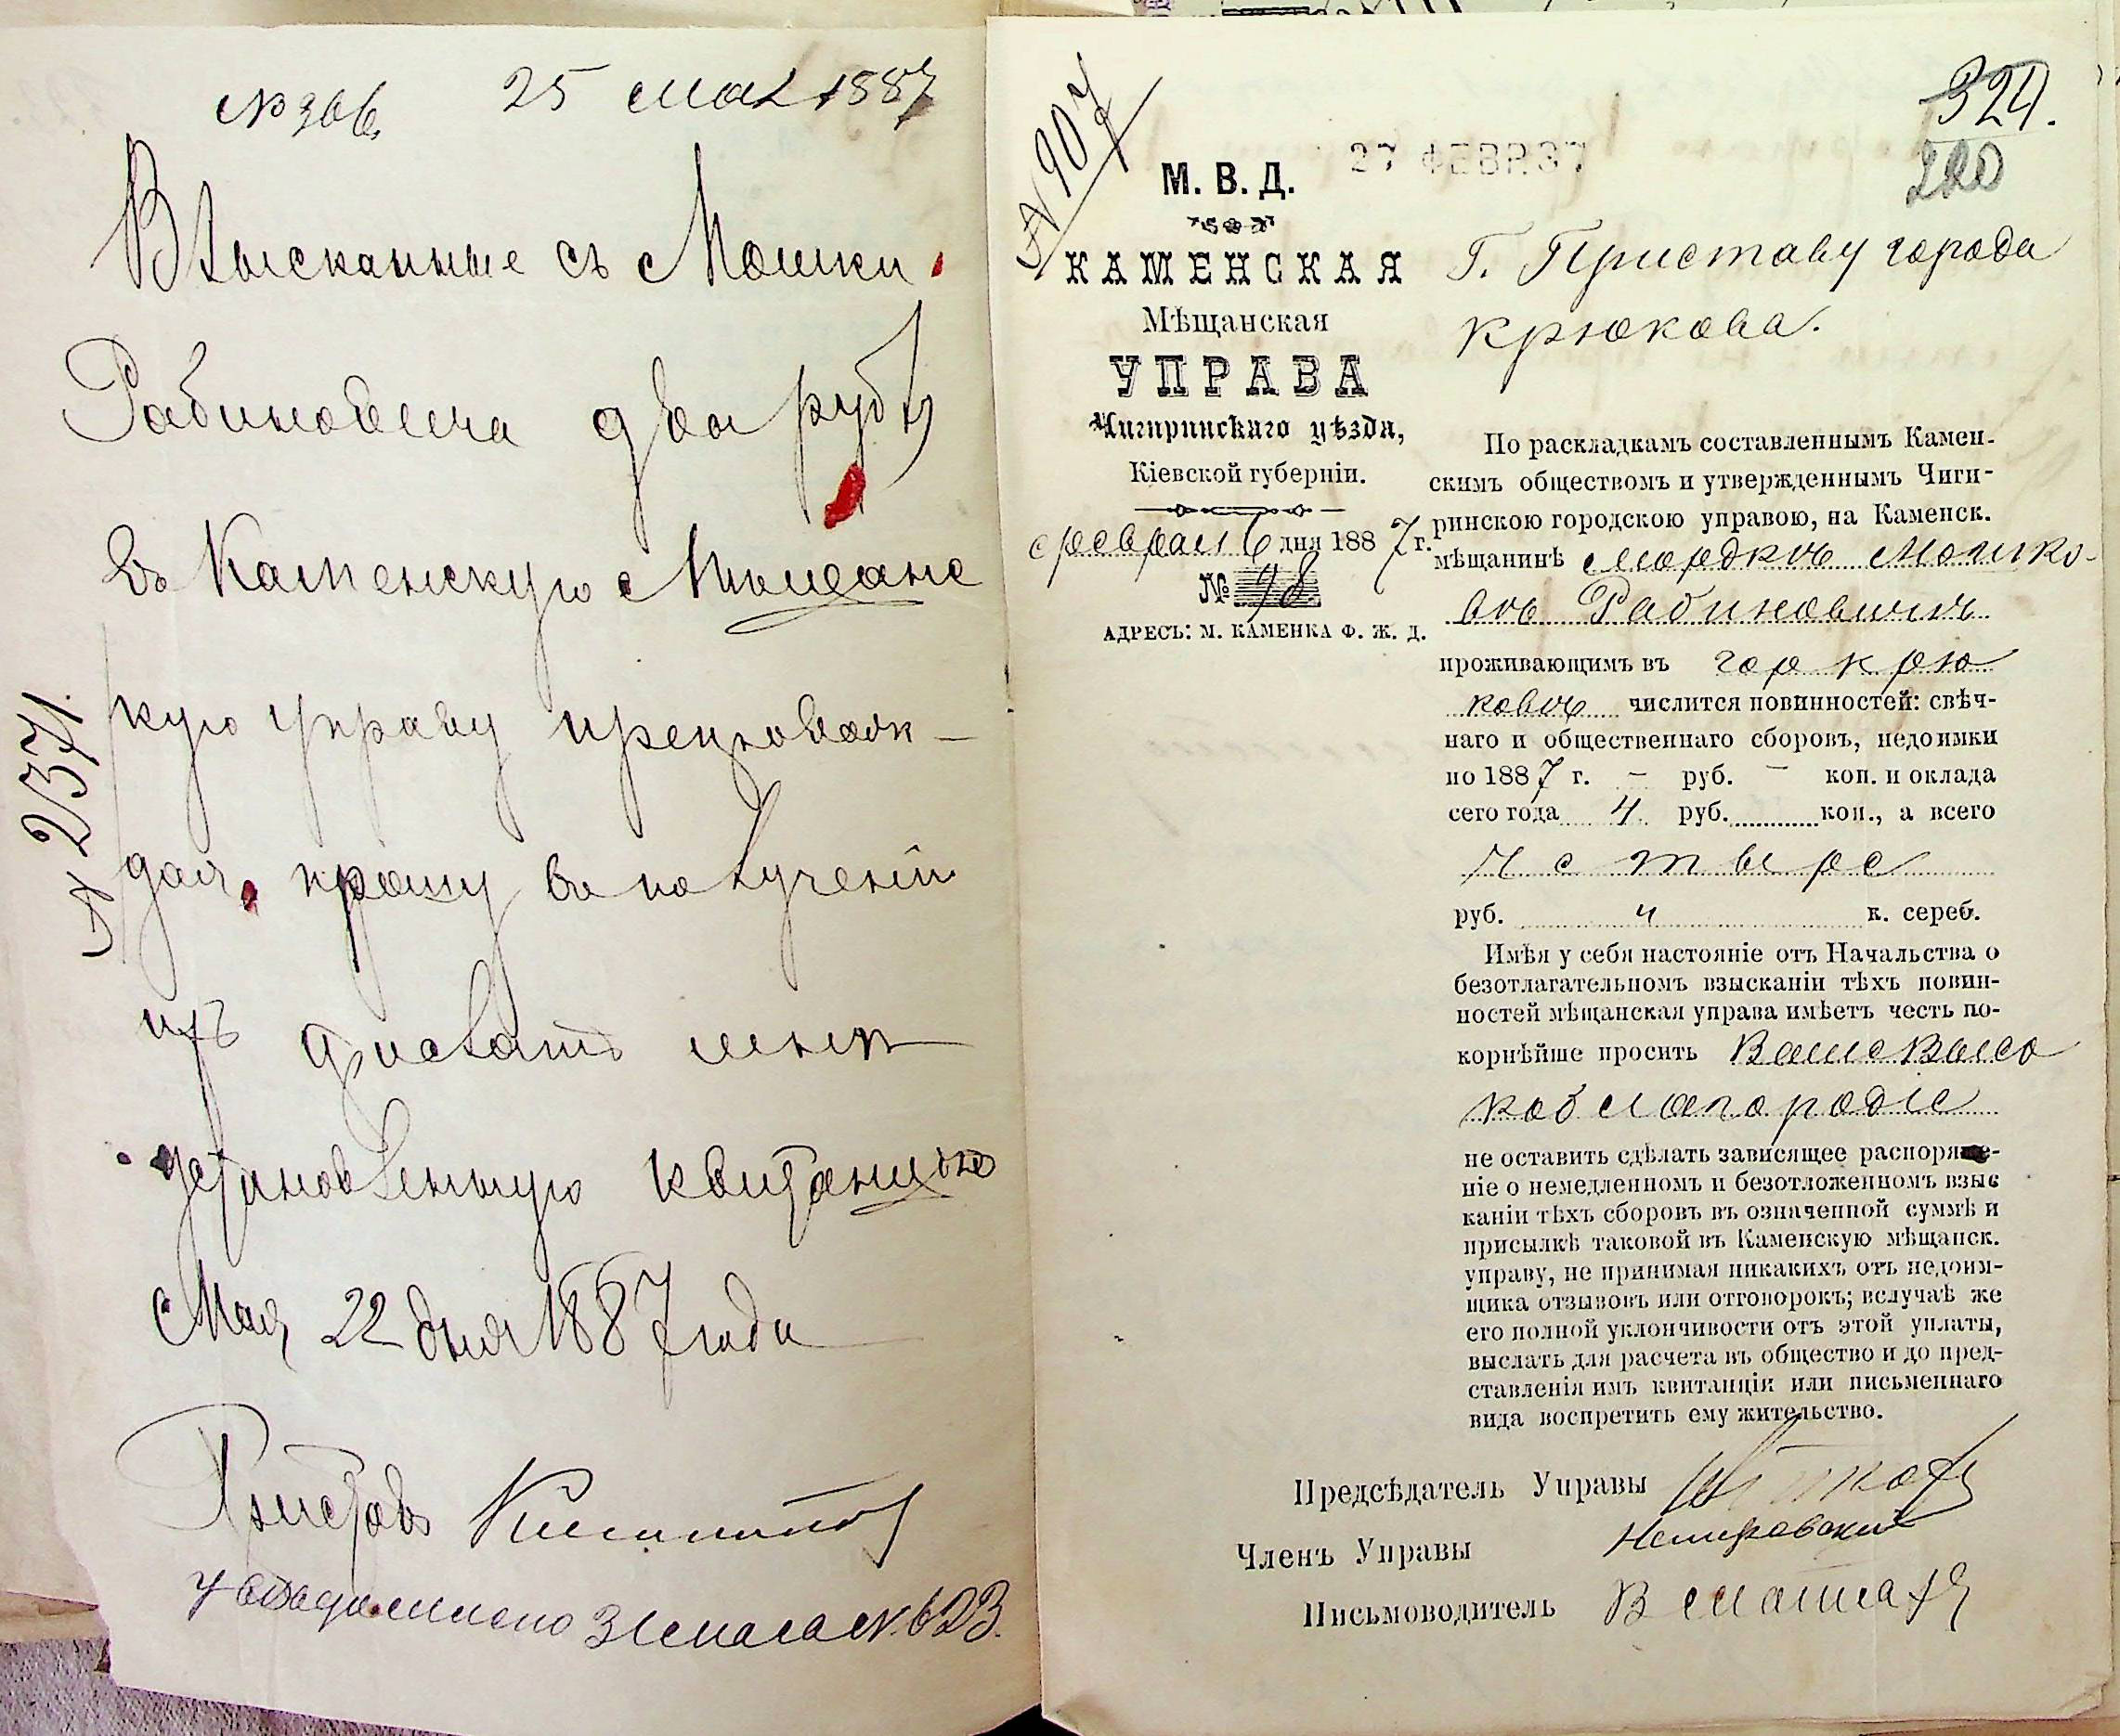 № 306. 25 Мая 1887
Взысканные съ Мошки
Рабиновича два руб
въ Каменскую Мещанс
кую Управу препровож-
дая, прошу въ получении
ихъ выслать мнѣ
установленную квитанцию
Мая 22 дня 1887 года
Приставъ
Уведомлено № 623.
№ 2371.
№ 907
27 ФЕВР. 87
324.
220
М. В. Д.
КАМЕНСКАЯ
Мѣщанская
УПРАВА
Чигиринскаго уѣзда,
Кіевской губерніи.
февраля 6 дня 1887 г.
№ 48
АДРЕСЪ: М. КАМЕНКА Ф. Ж. Д.
Г. Приставу города
Крюкова.
По раскладкамъ составленнымъ Камен-
скимъ обществомъ и утвержденнымъ Чиги-
ринскою городскою управою, на Каменск.
мѣщанинѣ Мордкѣ Мошко-
вѣ Рабиновичѣ
проживающимъ въ гор Крю
ковѣ числится повинностей: свѣч-
наго и общественнаго сборовъ, недоимки
по 1887 г. — руб. — коп. и оклада
сего года 4 руб. коп., а всего
четыре
руб. 4 к. сереб.
Имѣя у себя настояніе отъ Начальства о
безотлагательномъ взысканіи тѣхъ повин-
ностей мѣщанская управа имѣетъ честь по-
корнѣйше просить Ваше Высо
коблагородіе
не оставить сдѣлать зависящее распоряже-
ніе о немедленномъ и безотложенномъ взыс
каніи тѣхъ сборовъ въ означенной суммѣ и
присылкѣ таковой въ Каменскую мѣщанск.
управу, не принимая никакихъ отъ недоим-
щика отзывовъ или отговорокъ; вслучаѣ же
его полной уклончивости отъ этой уплаты,
выслать для расчета въ общество и до пред-
ставленія имъ квитанція или письменнаго
вида воспретить ему жительство.
Предсѣдатель Управы
Членъ Управы Немировский
Письмоводитель